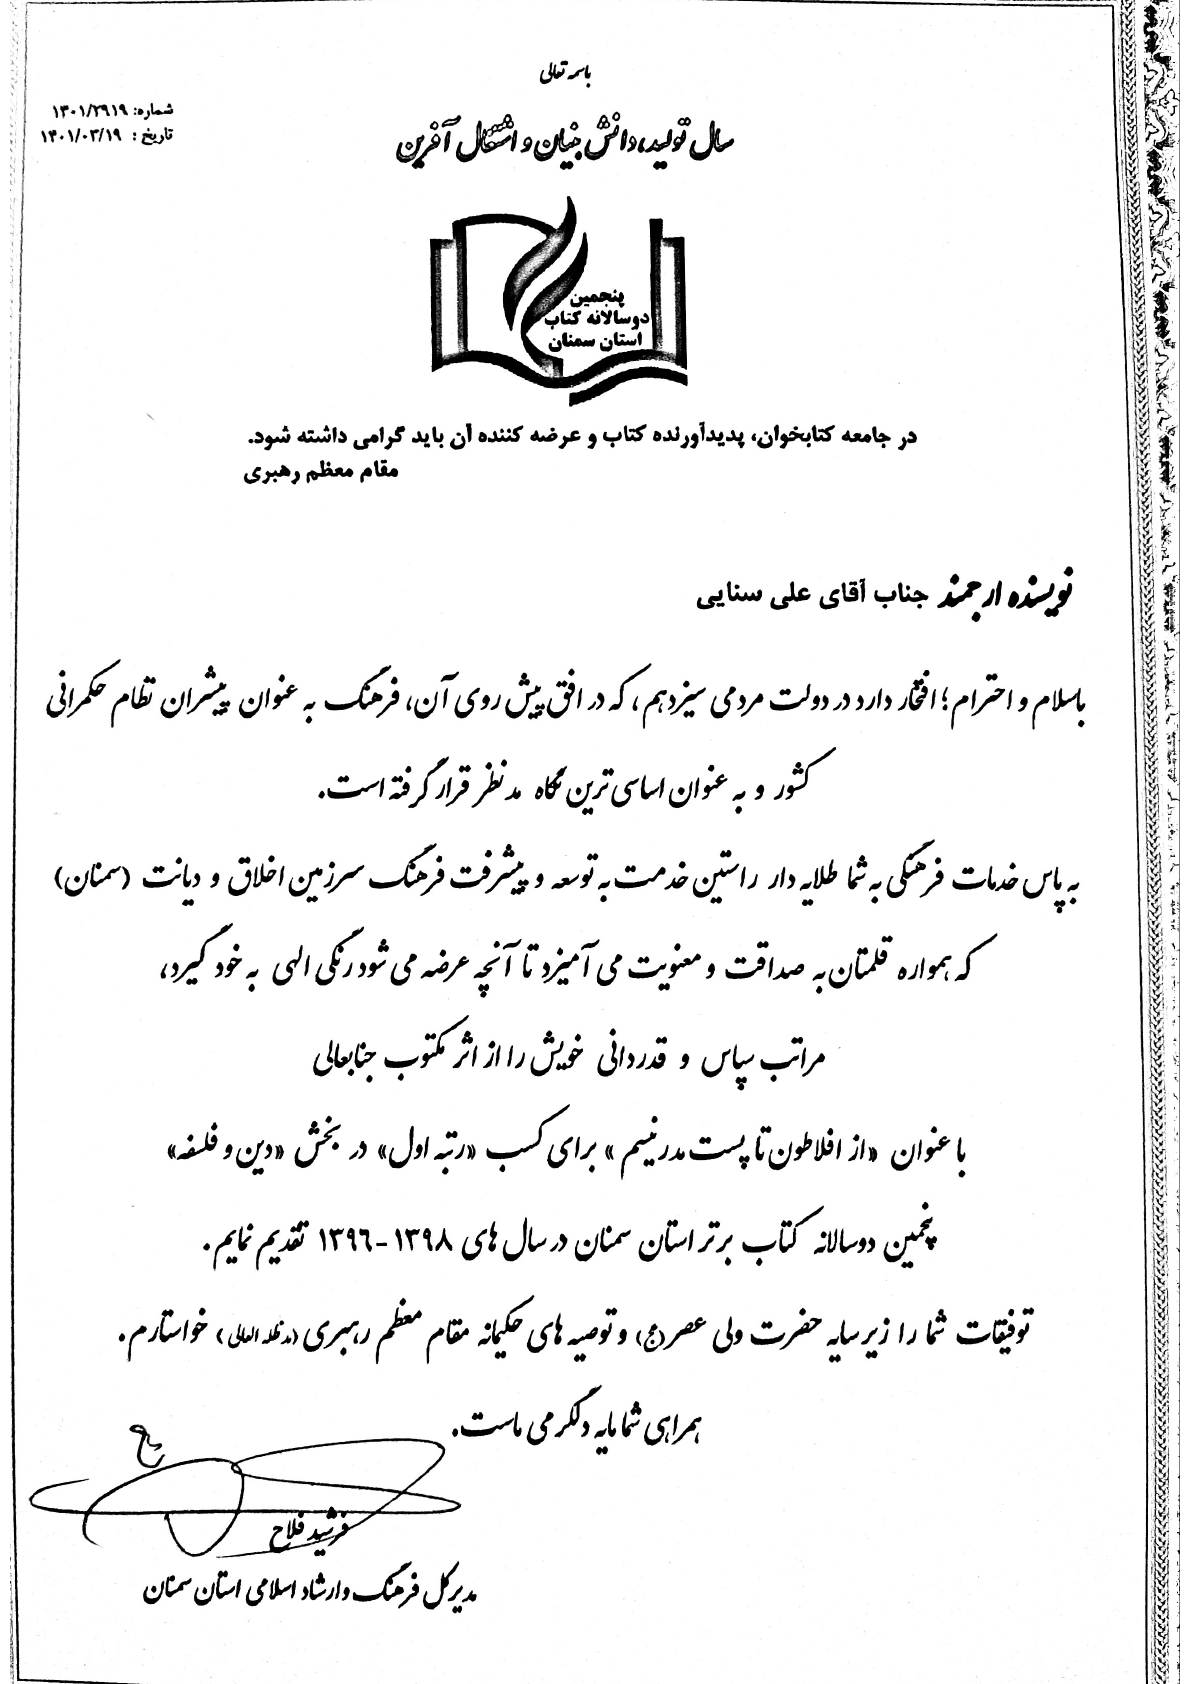 باسمه تعالی
شماره: ۱۴۰۱/۲۹۱۹
تاریخ : ۱۴۰۱/۰۳/۱۹
سال تولید، دانش بنیان و اشتغال آفرین
پنجمین
دوسالانه کتاب
استان سمنان
در جامعه کتابخوان، پدیدآورنده کتاب و عرضه کننده آن باید گرامی داشته شود.
مقام معظم رهبری
نویسنده ارجمند جناب آقای علی سنایی
باسلام و احترام؛ افتخار دارد در دولت مردمی سیزدهم، که در افق پیش روی آن، فرهنگ به عنوان پیشران نظام حکمرانی
کشور و به عنوان اساسی ترین نگاه مدنظر قرار گرفته است.
به پاس خدمات فرهنگی به شما طلایه دار راستین خدمت به توسعه و پیشرفت فرهنگ سرزمین اخلاق و دیانت (سمنان)
که همواره قلمتان به صداقت و معنویت می آمیزد تا آنچه عرضه می شود رنگی الهی به خود گیرد،
مراتب سپاس و قدردانی خویش را از اثر مکتوب جنابعالی
با عنوان «از افلاطون تا پست مدرنیسم» برای کسب «رتبه اول» در بخش «دین و فلسفه»
پنجمین دوسالانه کتاب برتر استان سمنان در سال های ۱۳۹۸-۱۳۹۶ تقدیم نمایم.
توفیقات شما را زیر سایه حضرت ولی عصر (عج) و توصیه های حکیمانه مقام معظم رهبری (مدظله العالی) خواستارم.
همراهی شما مایه دلگرمی ماست.
فرشید فلاح
مدیرکل فرهنگ و ارشاد اسلامی استان سمنان